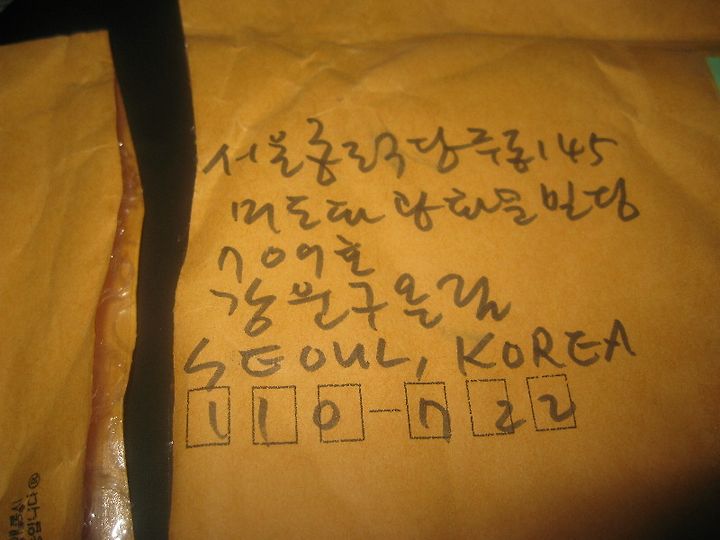 서울종로구당주동145
미도파광화문빌딩
709호
강문구올림
SEOUL, KOREA
110-722